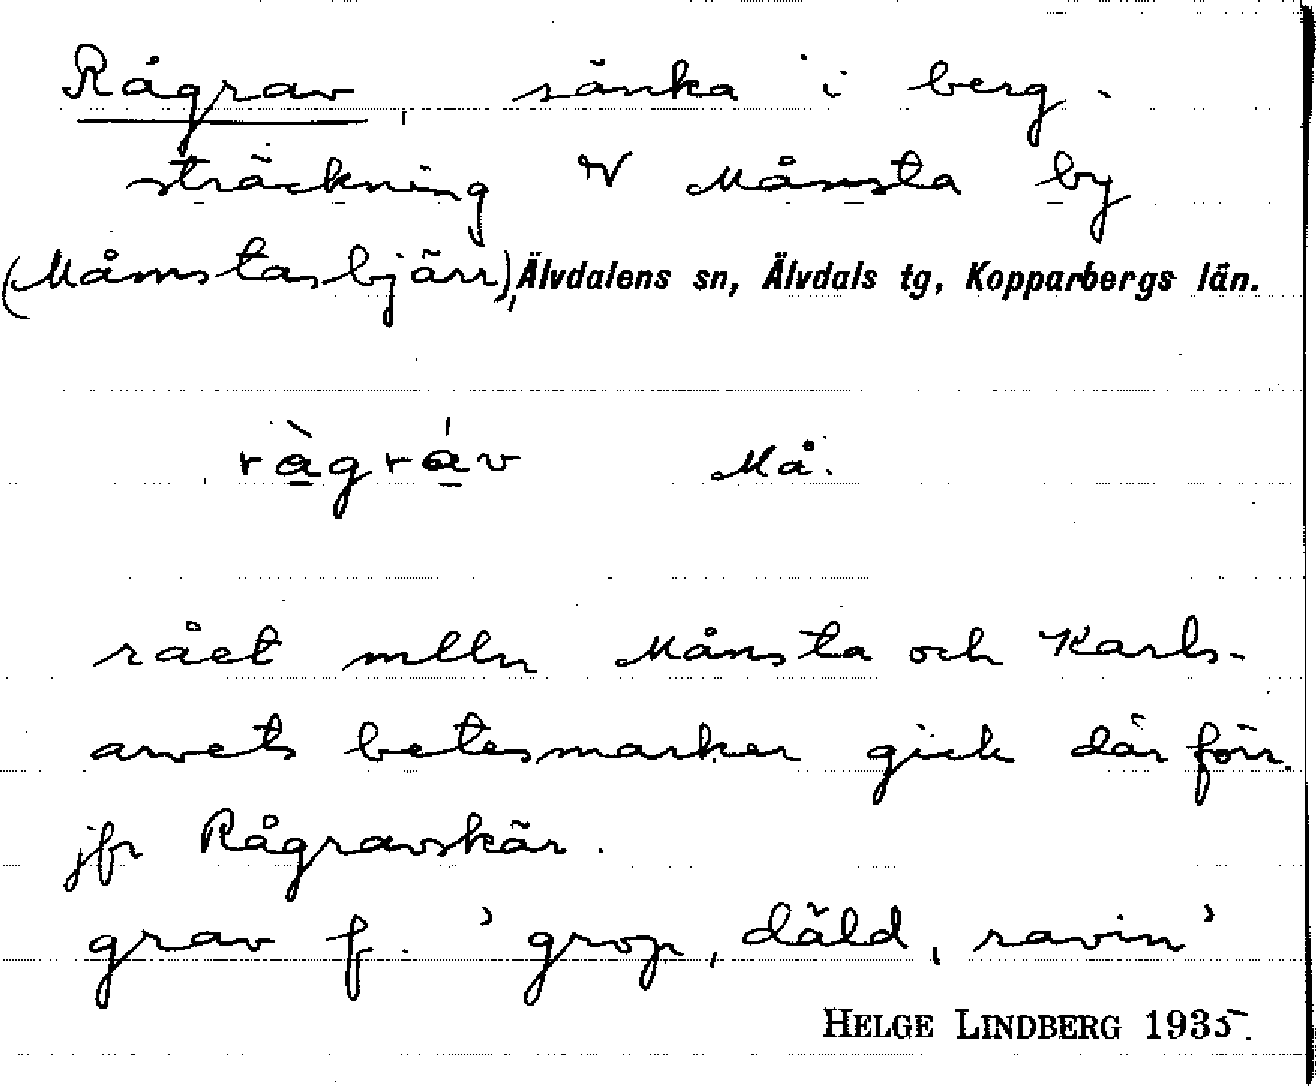 Rågrav, sänka i berg-
sträckning V Månsta by
(Månstasbjärr), Älvdalens sn, Älvdals tg, Kopparbergs län.
ràgráv Må.
rået mlln Månsta och Karls-
arvets betesmarker gick där förr.
jfr Rågravskär.
grav f. 'grop, däld, ravin'
HELGE LINDBERG 1935.